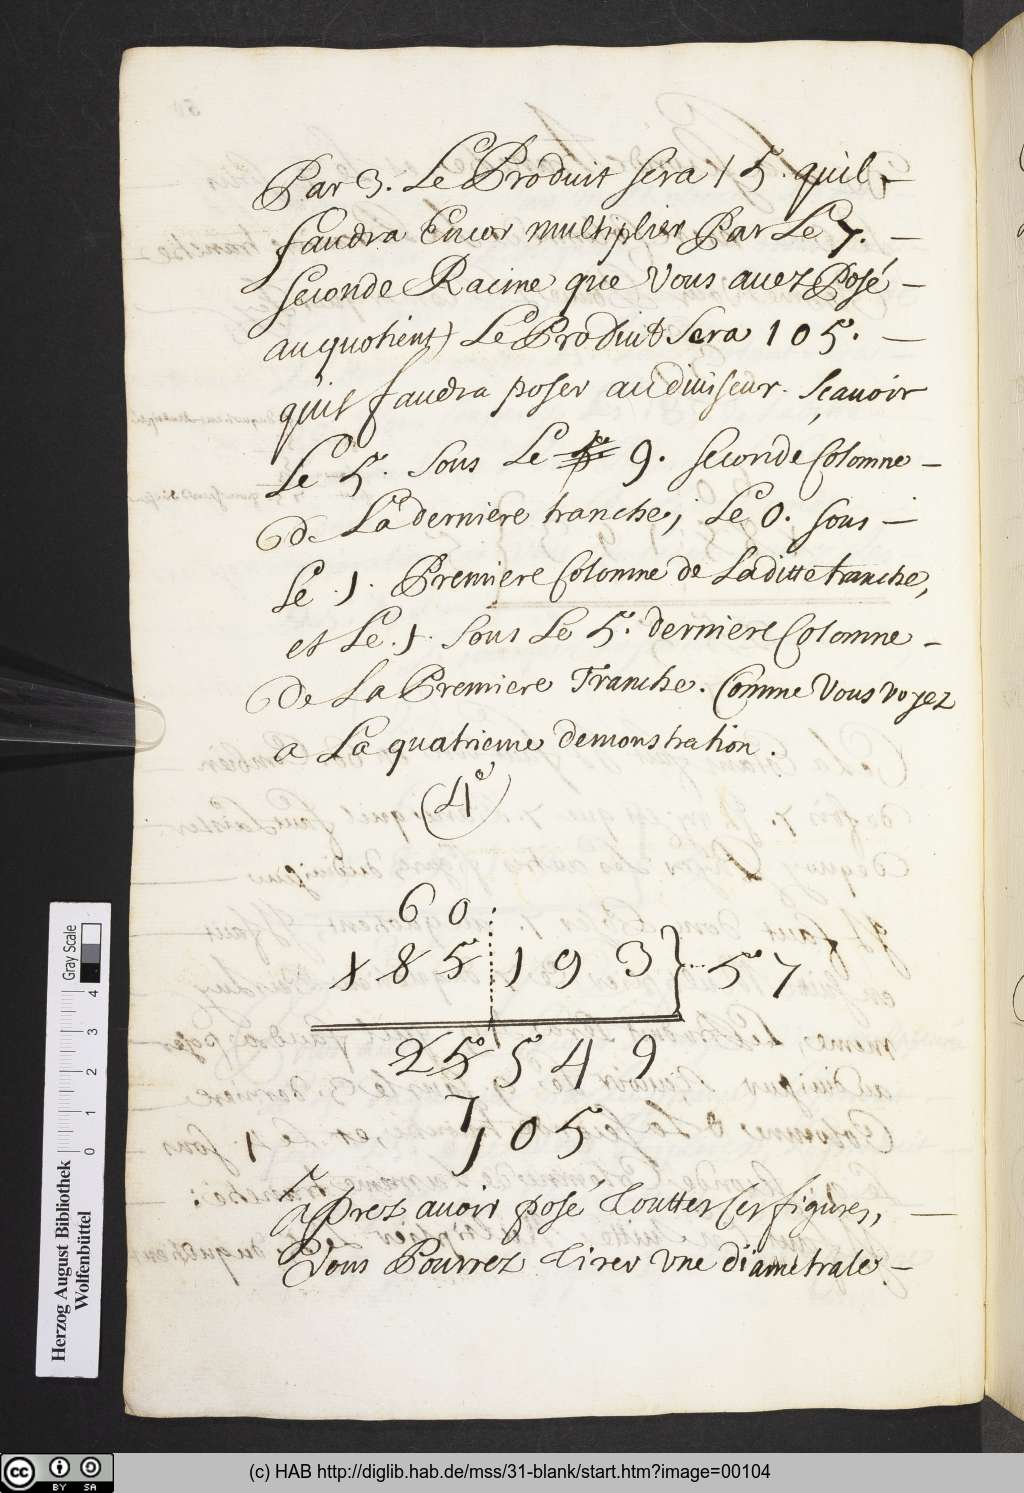 Par 3. Le Produit sera 15. quil –
faudra Encor multiplier Par Le 7. –
seconde Racine que Vous auez Posé –
au quotient) Le Produit Sera 105. –
quil faudra poser au diuiseur. Sçauoir
Le 5. sous Le 9. seconde Colomne –
de La derniere tranche, Le 0. sous –
Le 1. Premiere Colomne de Laditte tranche,
et Le .1. sous Le 5. derniere Colomne –
de La Premiere Tranche. Comme Vous voyez
a La quatrieme demonstration.
4e
60
185 193 } 57
25549
7
105
Aprez auoir posé touttes ces figures, –
Vous Pourrez tirer vne diametrale –
Herzog August Bibliothek
Wolfenbüttel
Gray Scale
0 1 2 3 4
cc BY SA
(c) HAB http://diglib.hab.de/mss/31-blank/start.htm?image=00104